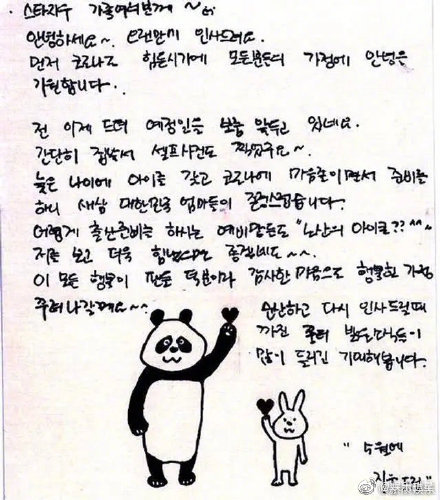 스타지우 가족여러분께~
안녕하세요~. 오랜만에 인사드려요.
먼저 코로나로 힘든시기에 모든분들의 가정에 안녕을
기원합니다.
전 이제 드뎌 예정일을 보름 앞두고 있네요.
간단히 집에서 셀프사진도 찍었구요~
늦은 나이에 아이를 갖고 코로나에 마음졸이면서 준비를
하니 새삼 대한민국 엄마들이 존경스럽습니다.
어렵게 출산준비를 하시는 예비맘들도 "노산의 아이콘?? ^^"
저를 보고 더욱 힘
이 모든 행복이 덕분이라 감사한 마음으로 행복한 가정
꾸려나갈께요~~
순산하고 다시 인사드릴때
까진
많이 들리길 기대해봅니다.
"오월에
지우드림